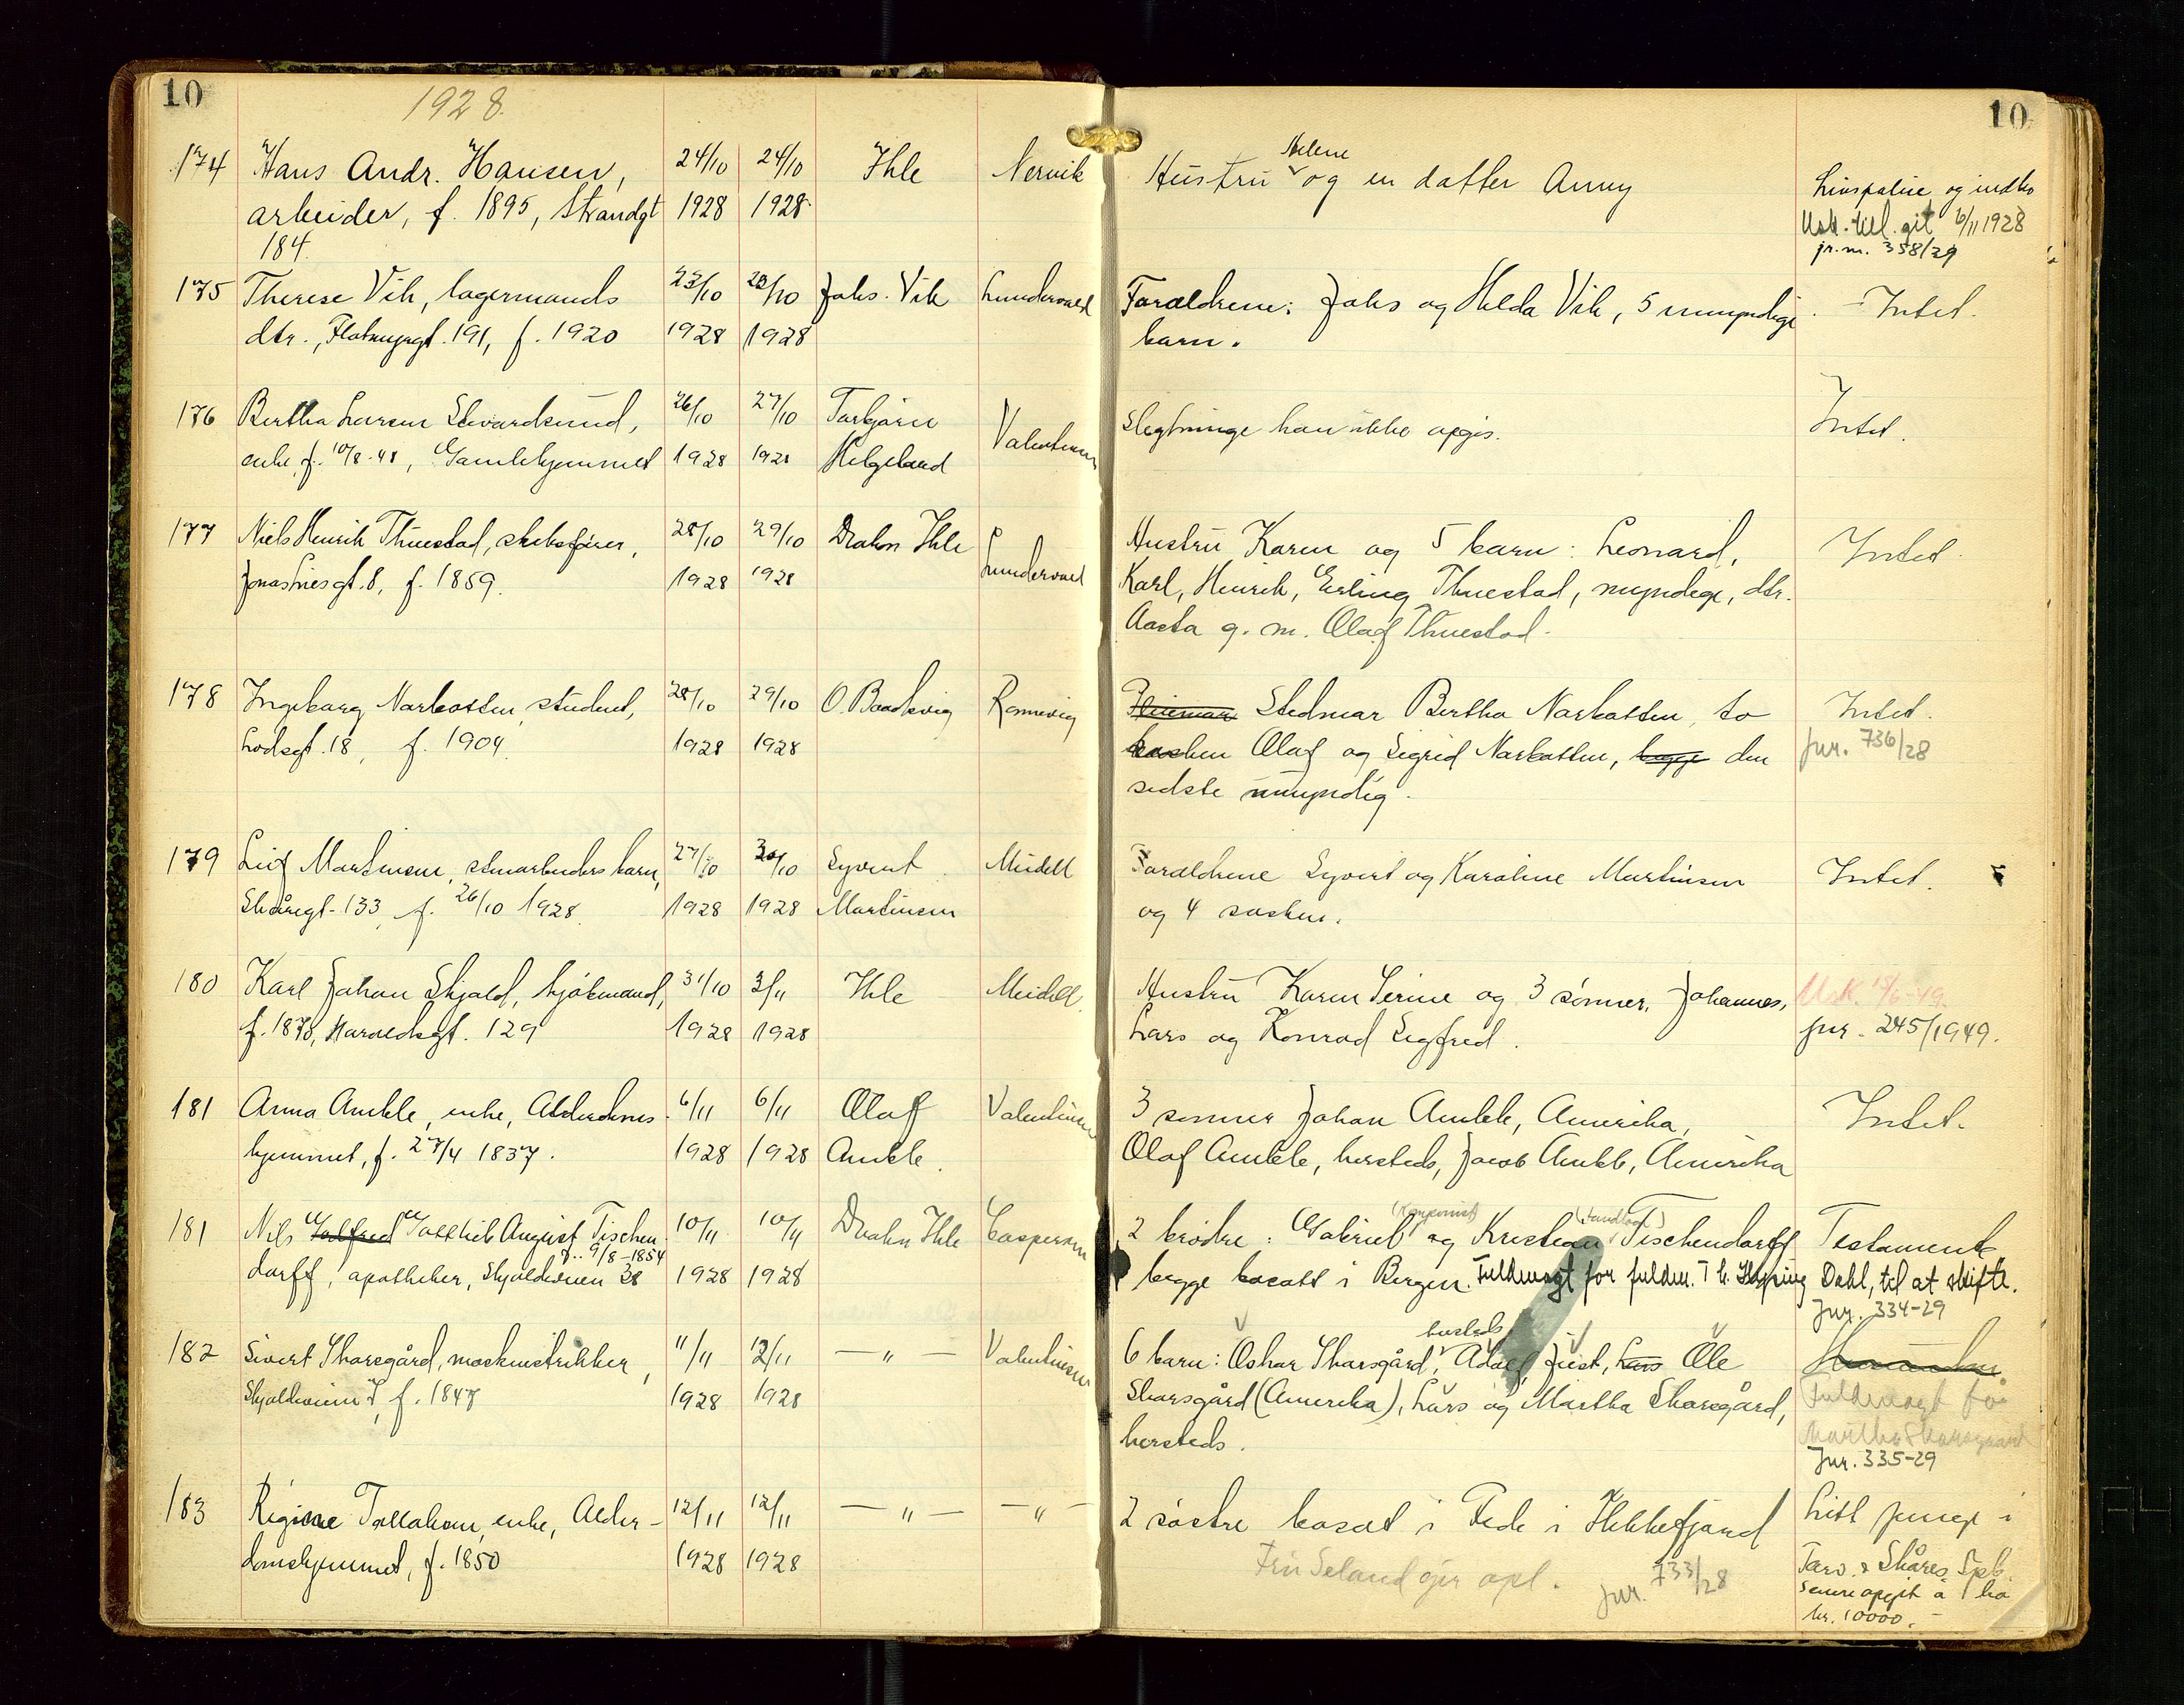 10
1928.
174 Hans Andr. Hansen, 24/10 24/10 Ihle Nervik
arbeider, f. 1895, Strandgt 1928 1928
184.
175 Therese Vik, lagermands 23/10 23/10 Johs. Vik Lundervold
dtr., Flotmyrgt. 191, f. 1920 1928 1928
176 Bertha Larsen Skvardsund, 26/10 27/10 Torbjørn Valentinsen
enke, f. 10/8-48, Gamlehjemmet 1928 1928 Helgeland
177 Niels Henrik Thuestad, skibsfører, 28/10 29/10 Drabn Ihle Lundervold
Jonas Liesgt. 8, f. 1859. 1928 1928
178 Ingeborg Norbotten, student, 28/10 29/10 O. Baadsvig Rønnevig
Lodsgt. 18, f. 1904. 1928 1928
179 Leif Martinsen, stenarbeiders barn, 27/10 30/10 Syvert Meidell
Skåregt. 133, f. 26/10 1928. 1928 1928 Martinsen
180 Karl Johan Skjold, kjøbmand, 31/10 3/11 Ihle Meidell.
f. 1878, Haraldsgt. 129 1928 1928
181 Anna Amble, enke, Alderdoms 6/11 6/11 Olaf Valentinsen
hjemmet, f. 27/4 1837. 1928 1928 Amble.
181 Nils Gottlieb August Tischen 10/11 10/11 Drabn Ihle Caspersen
f. 9/8-1854
dorff, apotheker, Skjoldveien 38 1928 1928
182 Sivert Skarsgård, maskinstrikker, 11/11 12/11 — " — Valentinsen
Skjoldveien 7, f. 1847 1928 1928
183 Regine Tallaksen, enke, Alder- 12/11 12/11 — " — — " —
domshjemmet, f. 1850 1928 1928
10
Helene
Hustru og en datter Anny Livspolise og indbo
Usk. till. git 6/11 1928
jr.nr. 358/29
Forældrene: Johs og Hilda Vik, 5 umyndige Intet.
barn.
Slegtninge kan ikke opgis. Intet.
Hustru Karen og 5 barn: Leonard, Intet.
Karl, Henrik, Erling Thuestad, myndige, dtr.
Aasta g. m. Olaf Thuestad.
Stedmor Bertha Norbotten, to Intet.
søsken Olaf og Sigrid Norbotten, begge den jnr. 736/28
sidste umyndig.
Forældrene Syvert og Karoline Martinsen Intet.
og 4 søsken.
Hustru Karen Serine og 3 sønner, Johannes, Usk. 18/6-49
Lars og Konrad Sigfred. jnr. 245/1949.
3 sønner Johan Amble, Amerika, Intet.
Olaf Amble, hersteds, Jacob Amble, Amerika
(Komponist) (tandlæge)
2 brødre: Gabriel og Kristian Tischendorff Testamente
begge bosatt i Bergen. Fuldmagt for fuldm. Dahl, til at skifte.
Jnr. 334-29
hersteds
6 barn: Oskar Skarsgård, Adolf, Just, Lars Ole
Skarsgård (Amerika), Lars og Martha Skarsgård, Fuldmagt for
Martha Skarsgaard
hersteds. Jnr. 335-29
2 søstre bosat i Fede i Flekkefjord Litt penge i
Torv. & Skåres Spb.
Fru Seland gir opl. jnr. 733/28 senere opgit å ha
kr. 10000.-